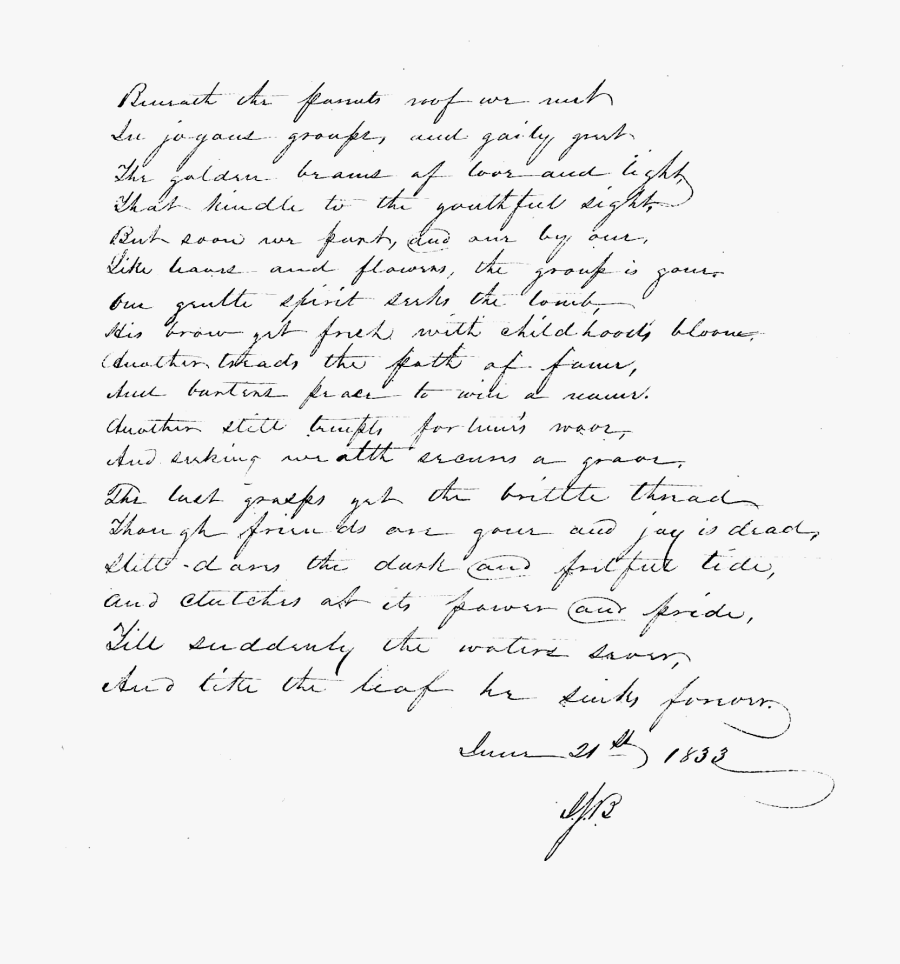 Beneath the parents roof we meet
In joyous groups, and gaily greet
The golden beams of love and light,
That kindle to the youthful sight,
But soon we part, and one by one,
Like leaves and flowers, the group is gone.
One gentle spirit seeks the tomb,
His brow yet fresh with childhood's bloom.
Another treads the path of fame,
And barters peace to win a name.
Another still tempts fortune's wave,
And seeking wealth secures a grave.
The last grasps yet the brittle thread
Though friends are gone and joy is dead,
Still dares the dark and fretful tide,
and clutches at its power and pride,
Till suddenly the waters sever,
And like the leaf he sinks forever.
June 21st, 1833